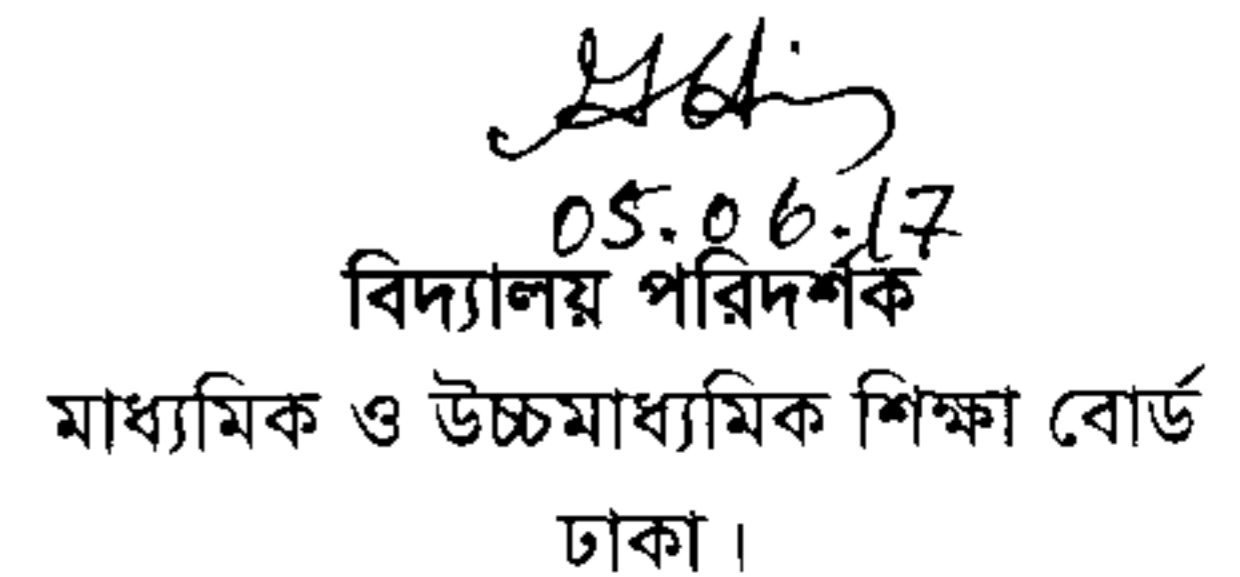 05.06.17
বিদ্যালয় পরিদর্শক
মাধ্যমিক ও উচ্চমাধ্যমিক শিক্ষা বোর্ড
ঢাকা।